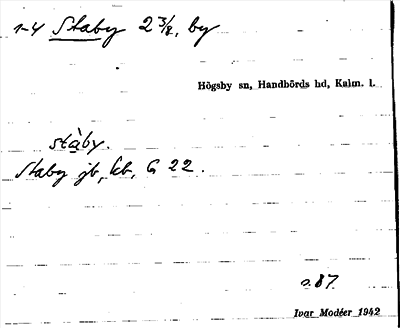 1-4 Staby 2 3/8, by
Högsby sn, Handbörds hd, Kalm. l.
stàby.
Staby jb, kb, G 22.
s. 87.
Ivar Modéer 1942